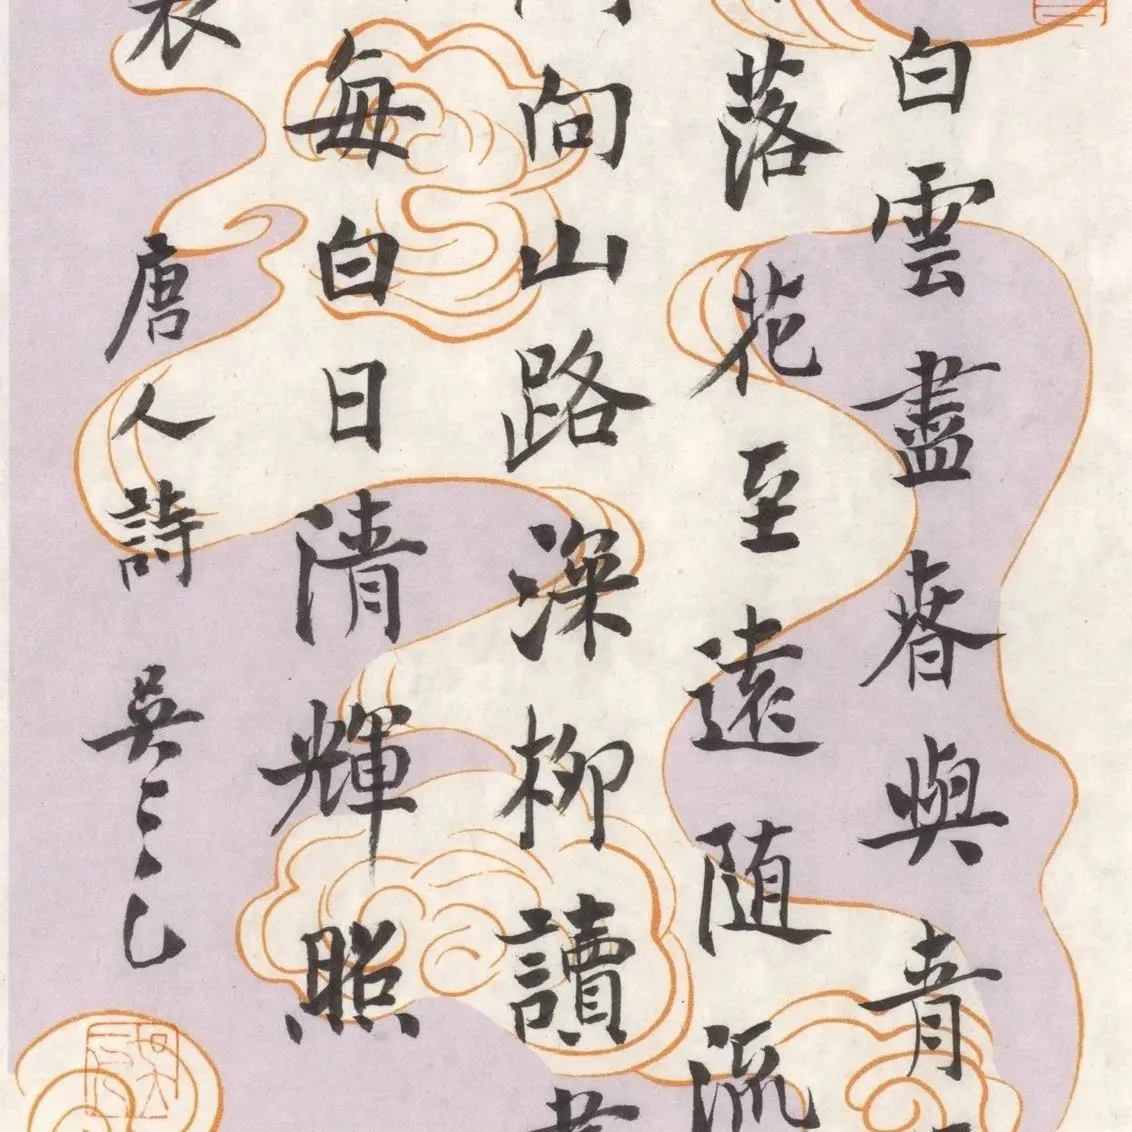 白雲盡春與青
落花至遠随流
向山路深柳讀
每白日清輝照
衣 唐人詩 吳